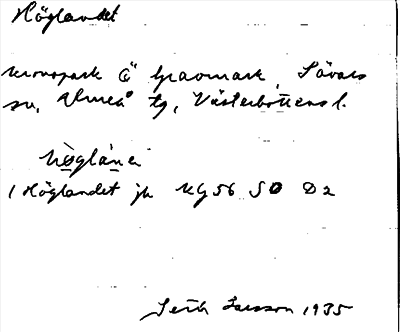 Höglandet
kronopark å Gravmark, Sävars
sn, Umeå tg, Västerbottens l.
Höglandet jk KG56 SO D2
Seth Larsson 1935